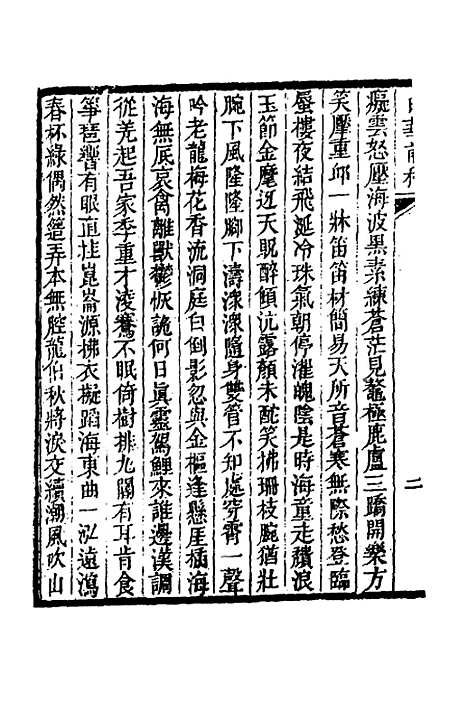 二
癡雲怒壓海波黑素練蒼茫見鼇極鹿盧三蹻開樂方
笑壓重邱一牀笛笛材簡易天所音蒼寒無際愁登臨
蜃樓夜結飛涎冷珠氣朝停濯魄陰是時海童走積浪
玉節金麾近天貺醉傾沆露顏未酡笑拂珊枝腕猶壯
腕下風隆隆腳下濤溁溁隨身雙管不知處穿霄一聲
吟老龍梅花香流洞庭白倒影忽與金樞逢懸崖插海
海無底哀禽離獸鬱恢詭何日眞靈駕鯉來誰邊漢調
從羌起吾家季重才凌鶱不眠倚樹排九關有耳肯食
箏琶響有眼直挂崑崙源拂衣擬蹈海東曲一泓遠瀉
春杯綠偶然簉弄本無腔龍伯秋將淚交續潮風吹山